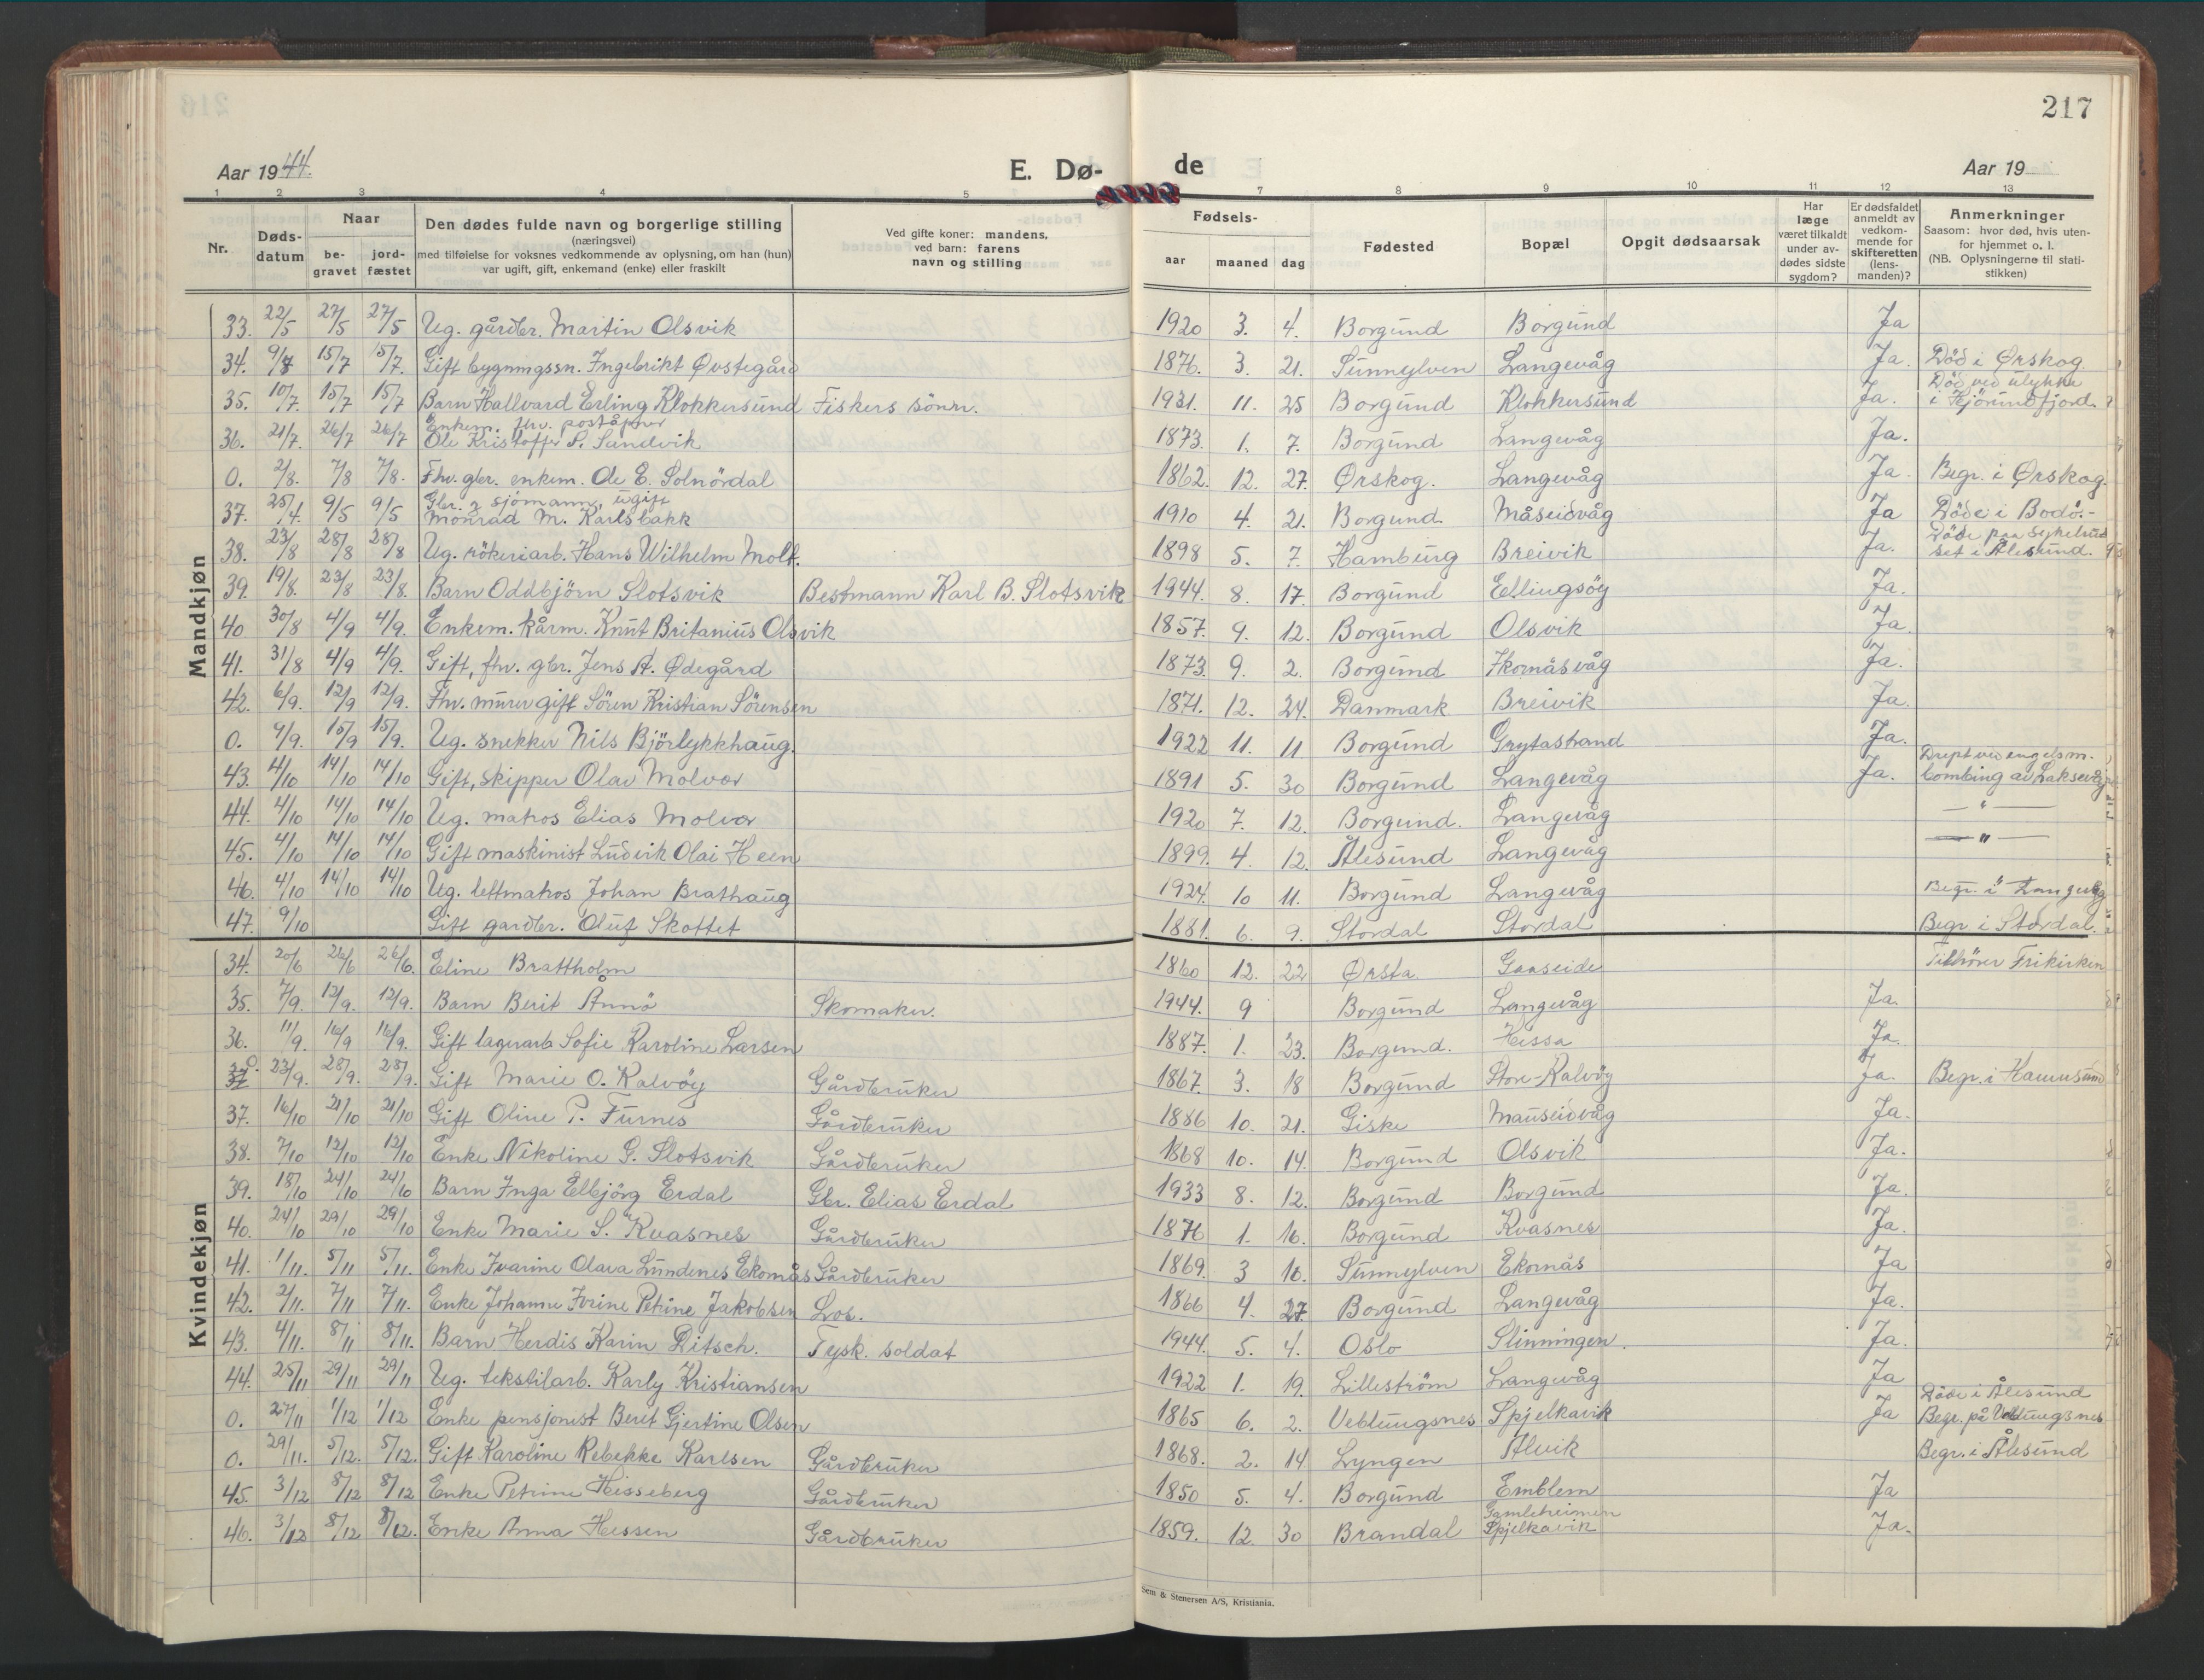 217
Aar 1944.
E. Dø-
de
Aar 19
1 2 3 4 5 7 8 9 10 11 12 13
Nr.
Døds-
datum
Naar
be-
gravet
jord-
fæstet
Den dødes fulde navn og borgerlige stilling
(næringsvei)
med tilføielse for voksnes vedkommende av oplysning, om han (hun)
var ugift, gift, enkemand (enke) eller fraskilt
Ved gifte koner: mandens,
ved barn: farens
navn og stilling
Fødsels-
aar maaned dag
Fødested
Bopæl
Opgit dødsaarsak
Har
læge
været tilkaldt
under av-
dødes sidste
sygdom?
Er dødsfaldet
anmeldt av
vedkom-
mende for
skifteretten
(lens-
manden)?
Anmerkninger
Saasom: hvor død, hvis uten-
for hjemmet o. l.
(NB. Oplysningerne til stati-
stikken)
Mandkjøn
33. 22/5 27/5 27/5 Ug. gårdbr. Martin Olsvik 1920 3. 4. Borgund Borgund Ja
34. 9/7 15/7 15/7. Gift bygningssn. Ingebrikt Øvstegård 1876. 3. 21. Sunnylven Langevåg Ja. Död i Ørskog
35. 10/7. 15/7 15/7 Barn Hallvard Erling Klokkersund Fiskers sönn. 1931. 11. 25 Borgund Klokkersund Ja. Död ved ulykke
i Hjörundfjord.
Enkem. fhv. poståpner
36. 21/7. 26/7 26/7 Ole Kristoffer S. Sandvik 1873. 1. 7. Borgund Langevåg Ja.
0. 2/8. 7/8 7/8. Fhv. gbr. enkem. Ole E. Solnördal 1862. 12. 27. Ørskog. Langevåg Ja. Begr. i Ørskog.
Gbr. & sjömann, ugift
37. 25/4. 9/5 9/5 Monrad M. Karlsbakk 1910 4. 21. Borgund. Måseidvåg Ja Döde i Bodö.-
38. 23/8 28/8 28/8 Ug. rökeriarb. Hans Wilhelm Molt. 1898 5. 7. Hamburg Breivik Ja. Döde paa sykehuset i Ålesund.
39. 19/8. 23/8 23/8. Barn Oddbjörn Slotsvik Bestmann Karl B. Slotsvik 1944. 8. 17. Borgund Ellingsöy Ja.
40 30/8 4/9 4/9. Enkem. kårm. Knut Britanius Olsvik 1857. 9. 12. Borgund Olsvik Ja.
41. 31/8 4/9 4/9. Gift, fhv. gbr. Jens A. Ødegård 1873. 9. 2. Borgund Ikornåsvåg Ja.
42. 6/9. 12/9 12/9. Fhv. murer gift Sören Kristian Sörensen 1871. 12. 24. Danmark Breivik Ja.
0. 9/9. 15/9 15/9. Ug. snekker Nils Björlykkhaug. 1922 11. 11 Borgund Grytastrand Ja.
43. 4/10 14/10 14/10 Gift, skipper Olav Molvær 1891 5. 30 Borgund Langevåg Ja. Drept ved engelsm.
bombing av Laksevåg
44. 4/10 14/10 14/10 Ug. matros Elias Molvær 1920 7. 12. Borgund. Langevåg — " —
45. 4/10 14/10 14/10 Gift maskinist Ludvik Olai Heen 1899. 4. 12. Ålesund Langevåg — " —
46. 4/10 14/10 14/10 Ug. lettmatros Johan Brathaug 1924. 10 11. Borgund Langevåg Begr. i Langevåg
47. 9/10 Gift gardbr. Oluf Skottet 1881. 6. 9. Stordal Stordal Begr i Stordal.
Kvindekjøn
34. 20/6 26/6 26/6. Eline Brattholm 1860 12. 22 Ørsta Gaaseide Tilhörer Frikirken
35. 7/9. 12/9. 12/9. Barn Berit Ånnö Skomaker. 1944. 9 Borgund Langevåg Ja.
36. 11/9. 16/9 16/9. Gift lagerarb. Sofie Karoline Larsen 1887. 1. 23. Borgund. Hessa Ja.
0. 23/9. 28/9. 28/9. Gift Marie O. Kalvöy Gårdbruker 1867. 3. 18 Borgund Store-Kalvöy Ja. Begr. i Hamnsund
37. 16/10 21/10 21/10 Gift Oline P. Furnes Gårdbruker 1886 10. 21. Giske Mauseidvåg Ja.
38. 7/10 12/10 12/10 Enke Nikoline G. Slotsvik Gårdbruker 1868 10. 14. Borgund Olsvik Ja.
39. 18/10 24/10 24/10 Barn Inga Elbjörg Erdal Gbr. Elias Erdal 1933 8. 12. Borgund Borgund Ja.
40. 24/10 29/10 29/10 Enke Marie S. Kvasnes Gårdbruker 1876 1. 16. Borgund Kvasnes Ja.
41. 1/11. 5/11 5/11. Enke Ivarine Olava Lundenes Ekornås Gårdbruker 1869. 3 16. Sunnylven Ekornås Ja
42. 2/11. 7/11 7/11. Enke Johanne Ivrine Petrine Jakobsen Los. 1866 4. 27. Borgund Langevåg Ja.
43. 4/11. 8/11 8/11. Barn Herdis Karin Ditsch. Tysk. soldat 1944. 5. 4. Oslo Slinningen. Ja.
44. 25/11 29/11 29/11 Ug. tekstilarb. Karly Kristiansen 1922 1. 19. Lilleström Langevåg Ja
0. 27/11 1/12 1/12 Enke pensjonist Berit Gjertine Olsen 1865 6. 2. Veblungsnes Spjelkavik Ja Döde i Ålesund
Begr. på Veblungsnes
0. 29/11. 5/12. 5/12. Gift Karoline Rebekke Karlsen Gårdbruker 1868. 2. 14 Lyngen Alvik Begr. i Ålesund
45. 3/12 8/12 8/12 Enke Petrine Hisseberg Gårdbruker 1850 5. 4. Borgund Emblem Ja
46. 3/12 8/12 8/12. Enke Anna Hessen Gårdbruker 1859. 12. 30 Brandal Gamleheimen
Spjelkavik Ja.
Sem & Stenersen A/S, Kristiania.